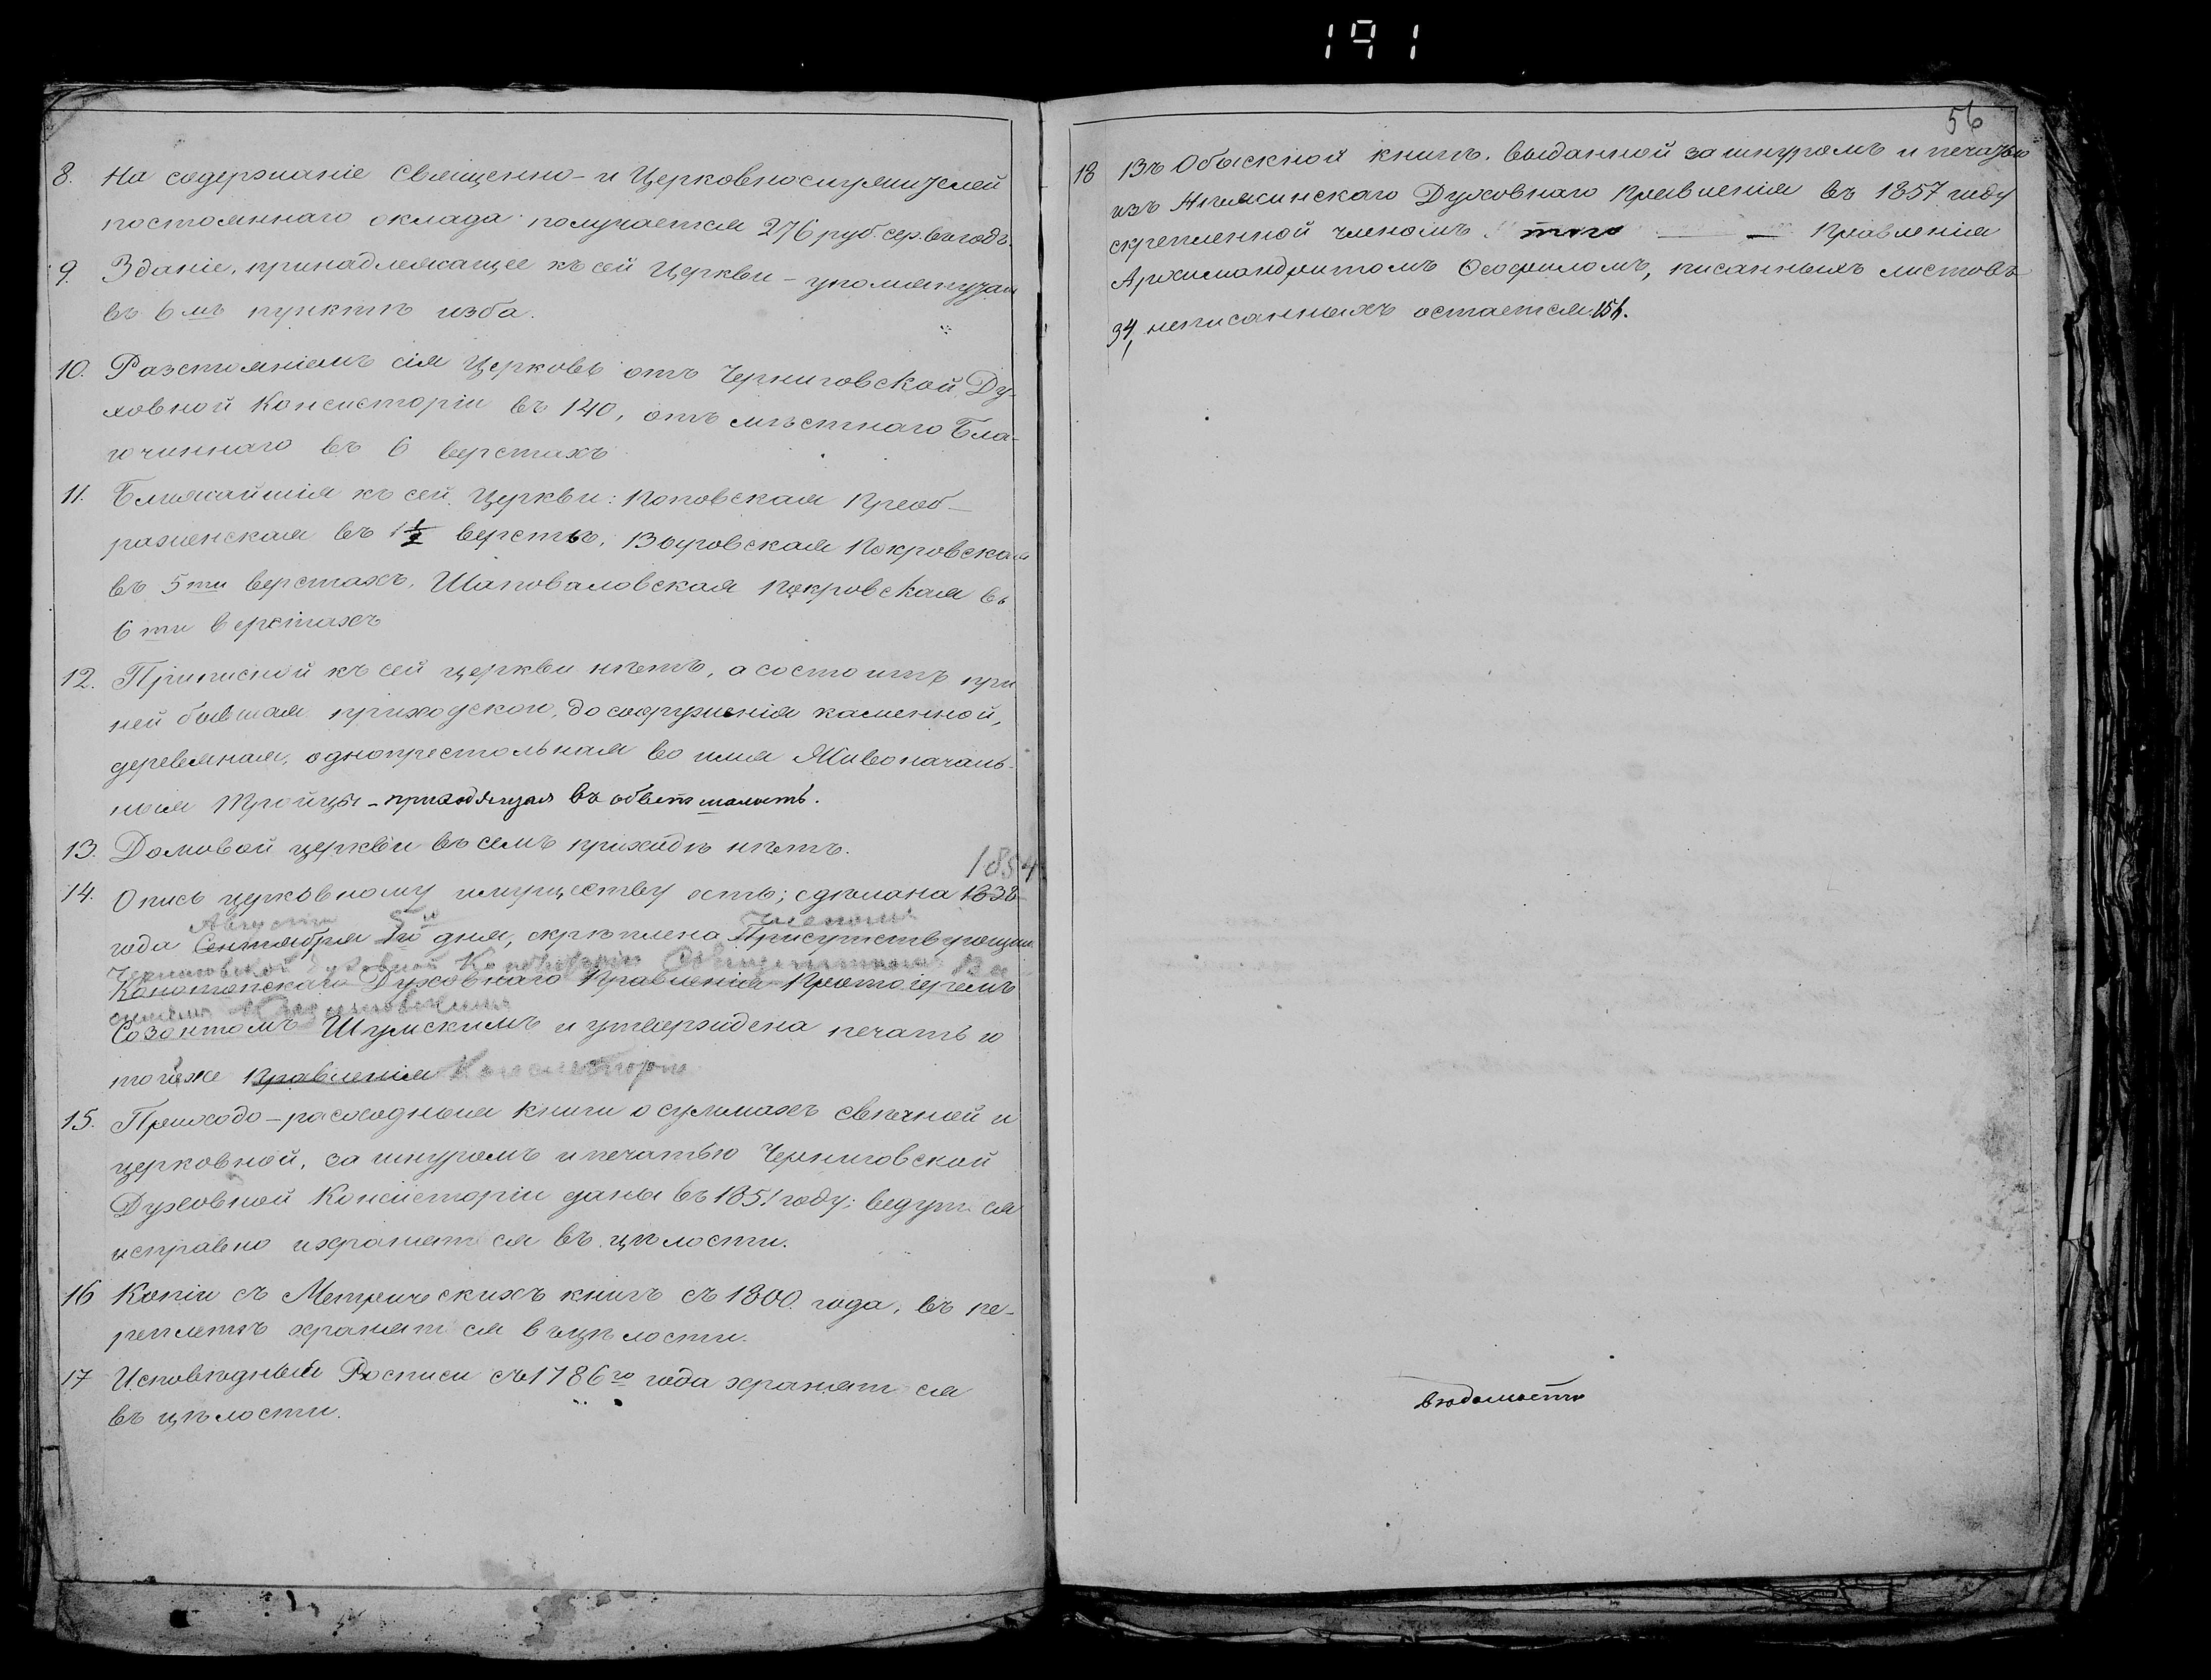 191
8. На содержаніе Священно- и Церковнослужителей
постояннаго оклада получается 276 руб. сер. въ годъ.
9. Зданіе, принадлежащее къ сей Церкви - упомянутая
въ 6мъ пунктѣ изба.
10. Разстояніемъ сія Церковь отъ Черниговской Ду-
ховной Консисторіи въ 140, отъ мѣстнаго Бла-
гочиннаго въ 6 верстахъ
11. Ближайшія къ сей Церкви: Поповская Преоб-
раженская въ 1½ верстѣ, Выровская Покровская
въ 5ти верстахъ, Шаповаловская Покровская въ
6ти верстахъ
12. Приписной къ сей церкви нѣтъ, а состоитъ при
ней бывшая приходскою, до сооруженія каменной,
деревянная, однопрестольная во имя Живоначаль-
ныя Тройцы - приходящая въ обветшалость.
13. Домовой церкви въ семъ приходѣ нѣтъ.
1854
14. Опись церковному имуществу есть; сдѣлана 1838
Августа 5го Членомъ
года Сентября 1го дня, скрѣплена Присутствующимъ
Черниговской духовной Консисторіи Священникомъ Ва
Конотопскаго Духовнаго Правленія Протоіереемъ
Созонтомъ Шумскимъ и утверждена печатью
тойже Правленія Консисторіи
15. Приходо-расходныя книги о суммахъ свѣчной и
церковной, за шнуромъ и печатью Черниговской
Духовной Консисторіи даны въ 1851 году; ведутся
исправно и хранятся въ цѣлости.
16 Копіи съ Метрическихъ книгъ съ 1800 года, въ пе-
реплетѣ хранятся въ цѣлости.
17 Исповѣдныя Росписи съ 1786го года хранятся
въ цѣлости.
56
18 Въ Обыскной книгѣ, выданной за шнуромъ и печатью
изъ Духовнаго Правленія въ 1857 году
скрепленной членомъ того Правленія
Архимандритомъ Ѳеофиломъ, писанныхъ листовъ
34, неписанныхъ остается 156.
вѣдомость